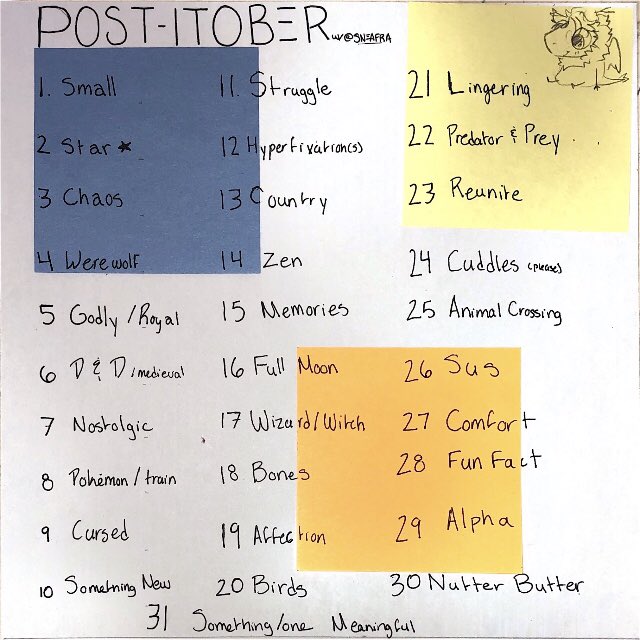 POST-ITOBER w/@SNEAFRA
1. Small
2 Star ★
3 Chaos
4 Werewolf
5 Godly / Royal
6 D & D / medieval
7 Nostolgic
8 Pokémon / train
9 Cursed
10 Something New
11. Struggle
12 Hyperfixation(s)
13 Country
14 Zen
15 Memories
16 Full Moon
17 Wizard/Witch
18 Bones
19 Affection
20 Birds
21 Lingering
22 Predator & Prey
23 Reunite
24 Cuddles (please)
25 Animal Crossing
26 Sus
27 Comfort
28 Fun Fact
29 Alpha
30 Nutter Butter
31 Something/one Meaningful